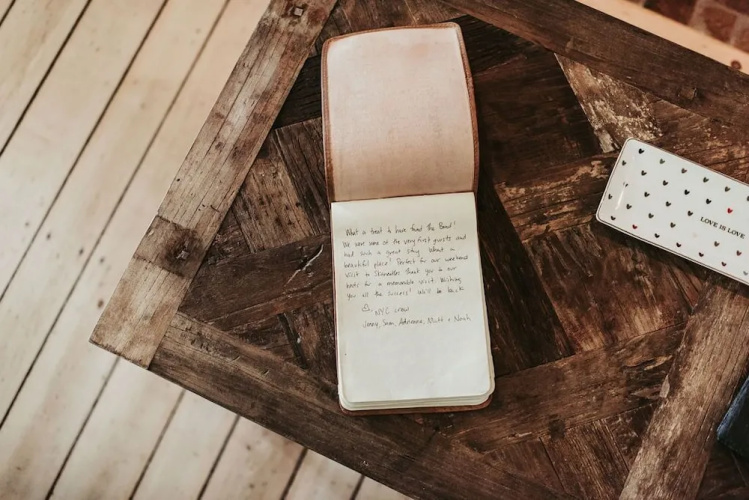 What a treat to have found the Bend!
We were some of the very first guests and
had such a great stay. What a
beautiful place! Perfect for our weekend
visit to Skaneateles thank you to our
hosts for a memorable visit. Wishing
you all the success! We'll be back
NYC crew
Jenny, Sam, Adrienne, Matt + Noah
LOVE IS LOVE